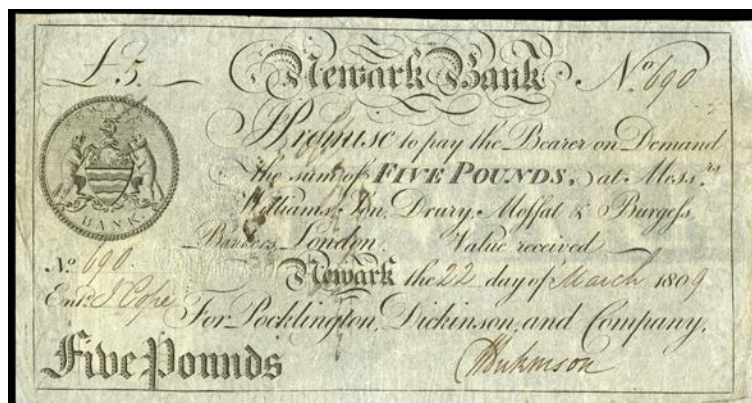 £5.— Newark Bank Nº 690
NEWARK
BANK.
I Promise to pay the Bearer on Demand
the sum of FIVE POUNDS, at Mess.rs
Williams, Son, Drury, Moffat & Burgess,
Bankers, London. Value received
Nº 690 Newark the 22 day of March 1809
Ent.d J Cope For Pocklington, Dickinson, and Company,
Five Pounds Dickinson